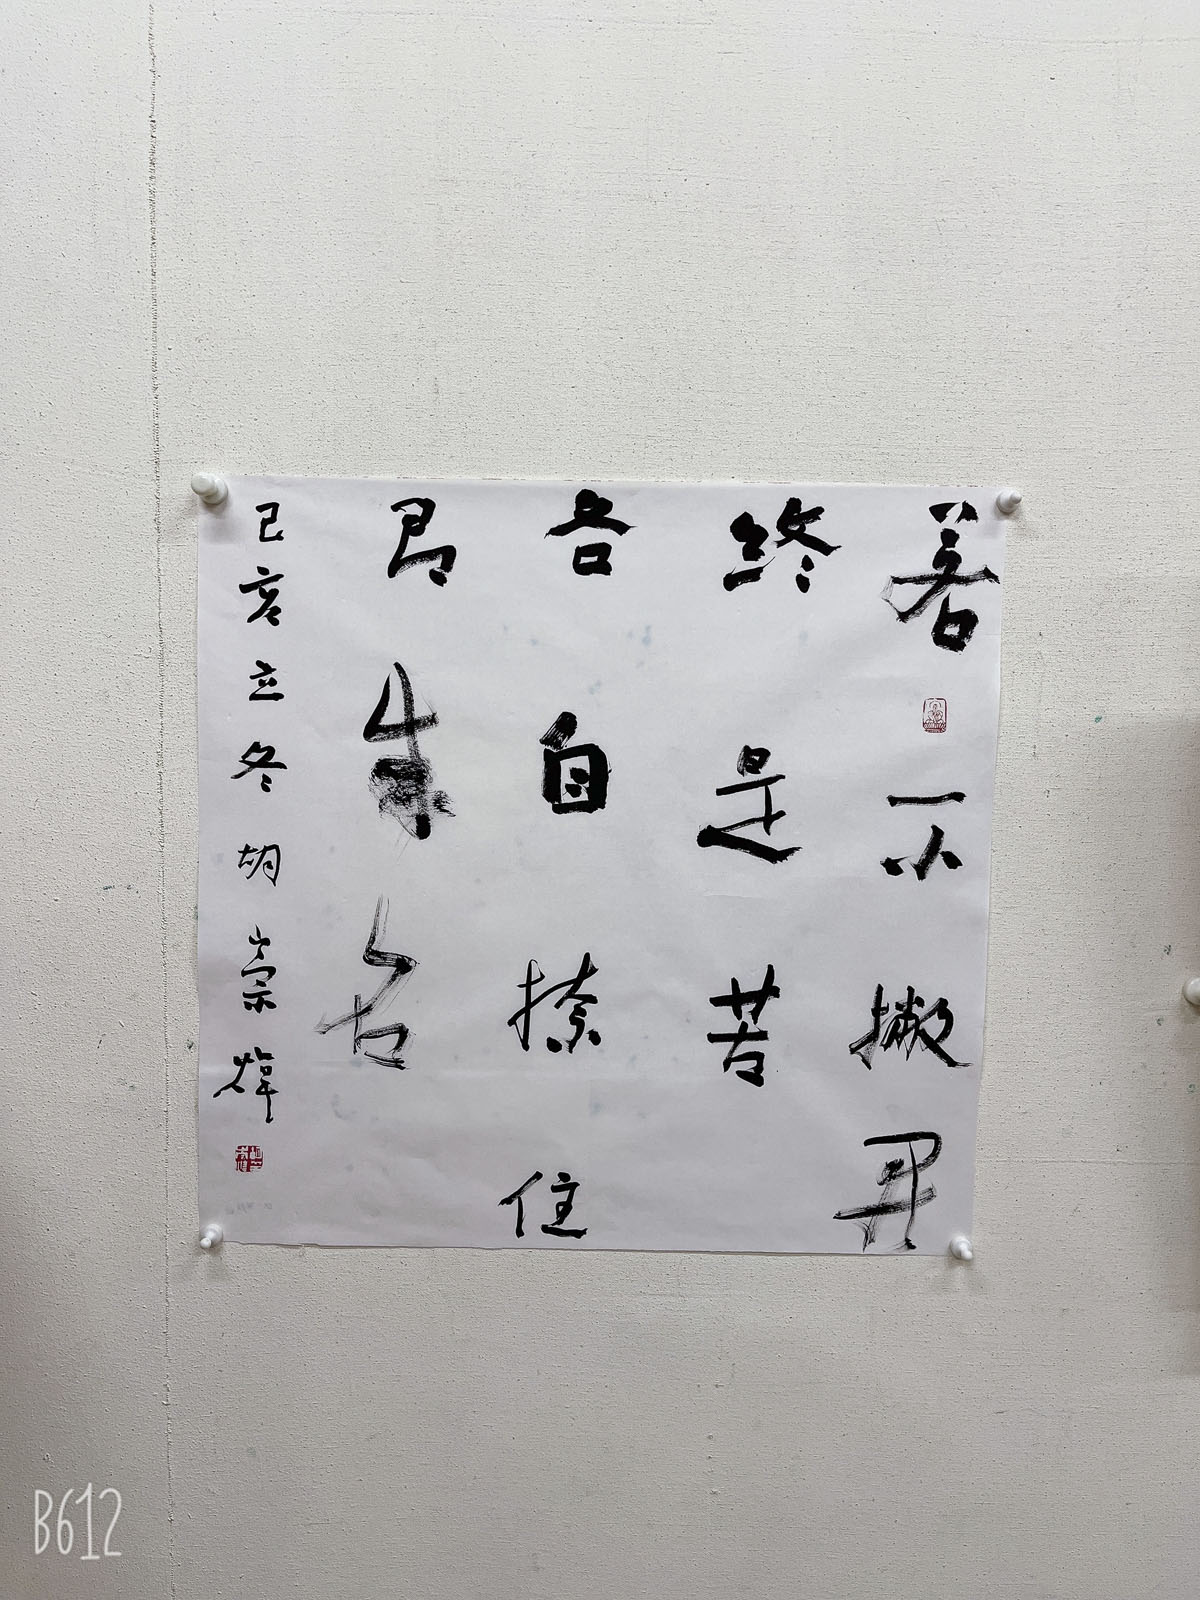 若不撇开
终是苦
各自捺住
即成名
己亥立冬胡崇煒
B612